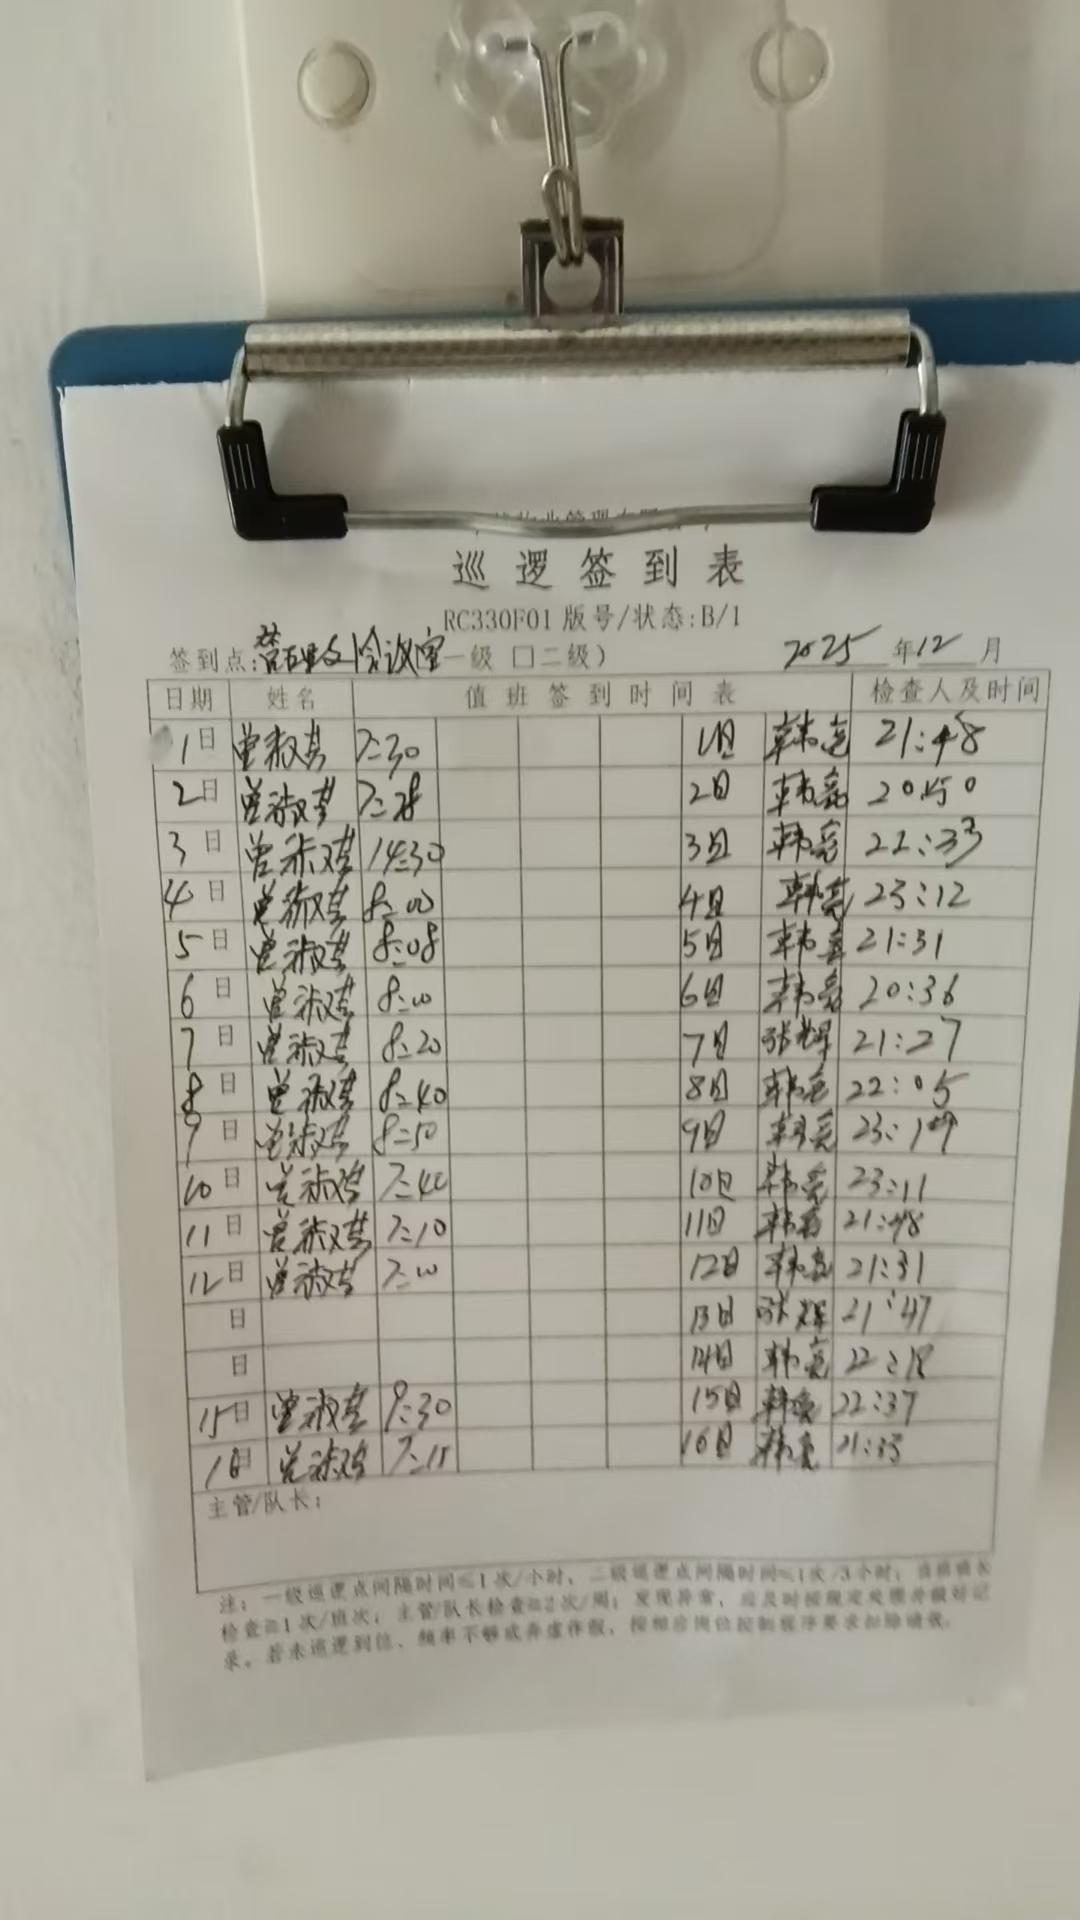 物业管理有限
巡逻签到表
RC330F01 版号/状态:B/1
签到点:营理处会议室一级 □二级) 2025年12月
日期 姓名 值班签到时间表 检查人及时间
1日 曾淑英 7:30 1日 韩亮 21:48
2日 曾淑英 7:28 2日 韩亮 20:50
3日 曾淑英 14:30 3日 韩亮 22:33
4日 曾淑英 8:00 4日 韩亮 23:12
5日 曾淑英 8:08 5日 韩亮 21:31
6日 曾淑英 8:00 6日 韩亮 20:36
7日 曾淑英 8:20 7日 张辉 21:27
8日 曾淑英 8:40 8日 韩亮 22:05
9日 曾淑英 8:50 9日 韩亮 23:19
10日 曾淑英 7:40 10日 韩亮 23:11
11日 曾淑英 7:10 11日 韩亮 21:48
12日 曾淑英 7:00 12日 韩亮 21:31
日 13日 张辉 21:47
日 14日 韩亮 22:18
15日 曾淑英 9:30 15日 韩亮 22:37
16日 曾淑英 7:15 16日 韩亮 21:35
主管/队长:
注: 一级巡逻点间隔时间≤1次/小时, 二级巡逻点间隔时间≤1次/3小时; 当班班长
检查≥1次/班次; 主管/队长检查≥2次/周; 发现异常, 应及时按规定处理并做好记
录。若未巡逻到位、频率不够或弄虚作假, 按相应岗位控制程序要求扣除绩效。